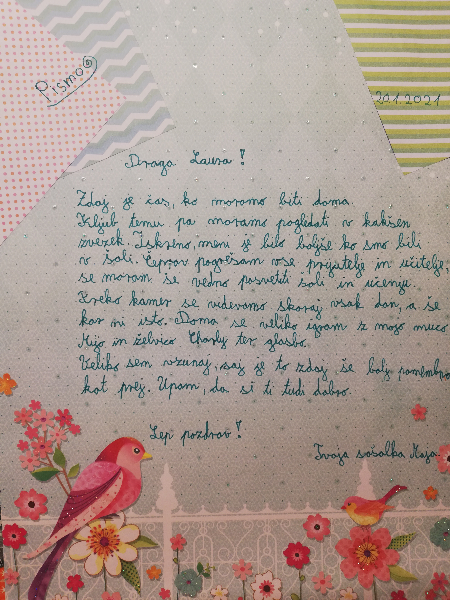 Pismo
20.1.2021
Draga Laura!
Zdaj je čas, ko moramo biti doma.
Kljub temu pa moramo pogledati v kakšen
zvezek. Iskreno, meni je bilo boljše ko smo bili
v šoli. Čeprav pogrešam vse prijatelje in učitelje,
se moram še vedno posvetiti šoli in učenju.
Preko kamer se videvamo skoraj vsak dan, a še
kar ni isto. Doma se veliko igram z mojo muco
Mijo in želvico Charly ter glasbo.
Veliko sem zunaj, saj je to zdaj še bolj pomembno
kot prej. Upam, da si ti tudi dobro.
Lep pozdrav!
Tvoja sošolka Maja